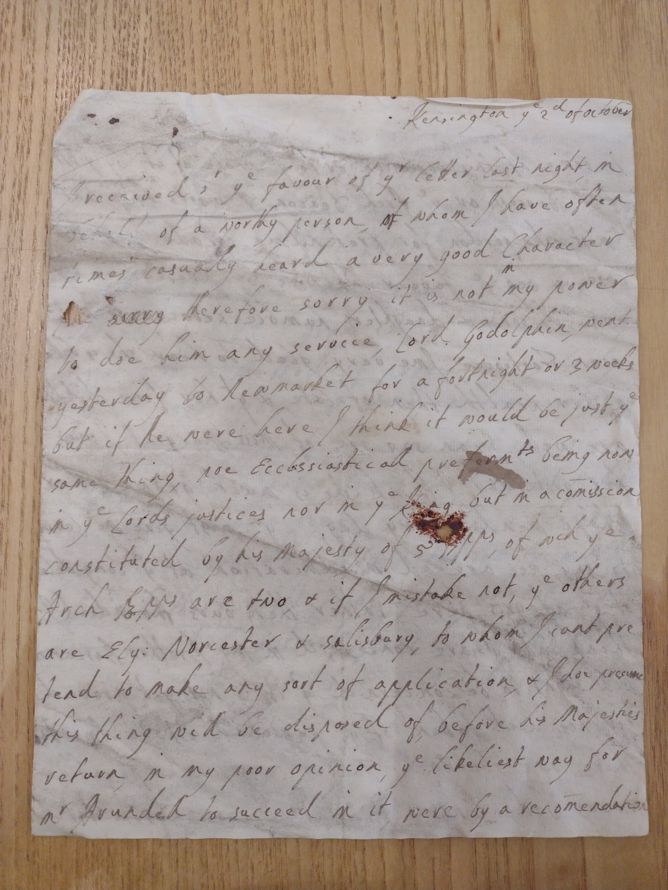 Kensington yᵉ 2ᵈ of october
I received Sʳ yᵉ favour of yʳ letter last night in
behalf of a worthy person, of whom I have often
times casually heard a very good Character
sorry therefore sorry it is not in my power
to doe him any servicie Lord Godolphin, went
yesterday to Newmarket for a fortnight or 3 weeks
but if he were here I think it would be just yᵉ
same thing, noe Ecclessiastical prefermᵗˢ being now
in yᵉ Lords justices nor in yᵉ King but in a comission
constituted by his Majesty of 5 Bpps, of wch yᵉ
Arch Bpps are two & if I mistake not, yᵉ others
are Ely: Worcester & salisbury, to whom I cant pre
tend to make any sort of application, & I doe presume
this thing will be disposed of before his Majesties
return, in my poor opinion, yᵉ likeliest way for
mʳ Arundell to succeed in it, were by a recomendation